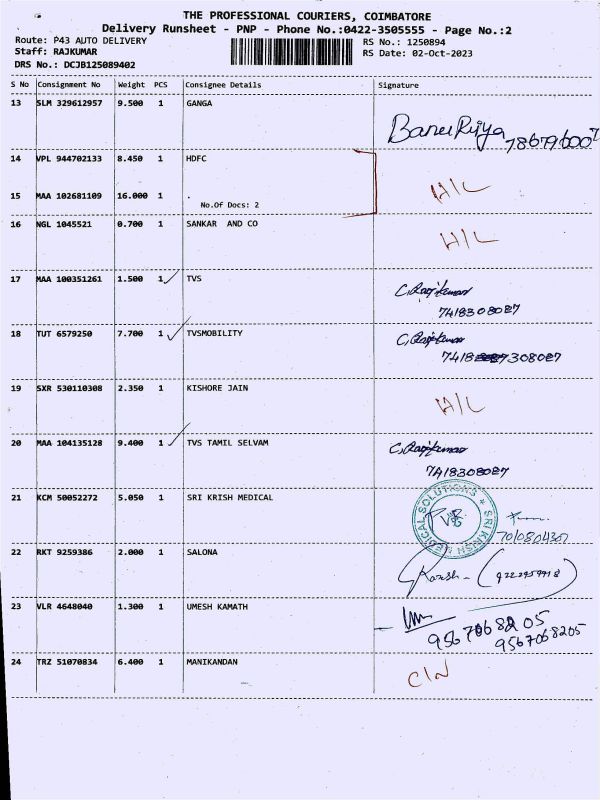 THE PROFESSIONAL COURIERS, COIMBATORE
Delivery Runsheet - PNP - Phone No.:0422-3505555 - Page No.:2
Route: P43 AUTO DELIVERY RS No.: 1250894
Staff: RAJKUMAR RS Date: 02-Oct-2023
DRS No.: DCJB125089402
S No Consignment No Weight PCS Consignee Details Signature
13 SLM 329612957 9.500 1 GANGA
14 VPL 944702133 8.450 1 HDFC
H/L
15 MAA 102681109 16.000 1 .
No.Of Docs: 2
16 NGL 1045521 0.700 1 SANKAR AND CO
H/L
17 MAA 100351261 1.500 1 TVS
C. Rajkumar
7418308087
18 TUT 6579250 7.700 1 TVSMOBILITY
C. Rajkumar
7418 308087
19 SXR 530110308 2.350 1 KISHORE JAIN
H/L
20 MAA 104135128 9.400 1 TVS TAMIL SELVAM
C. Rajkumar
7418308087
21 KCM 50052272 5.050 1 SRI KRISH MEDICAL
SRI KRISH MEDICAL SOLUTIONS
22 RKT 9259386 2.000 1 SALONA
23 VLR 4648040 1.300 1 UMESH KAMATH
9567068205
9567068205
24 TRZ 51070834 6.400 1 MANIKANDAN
C/N